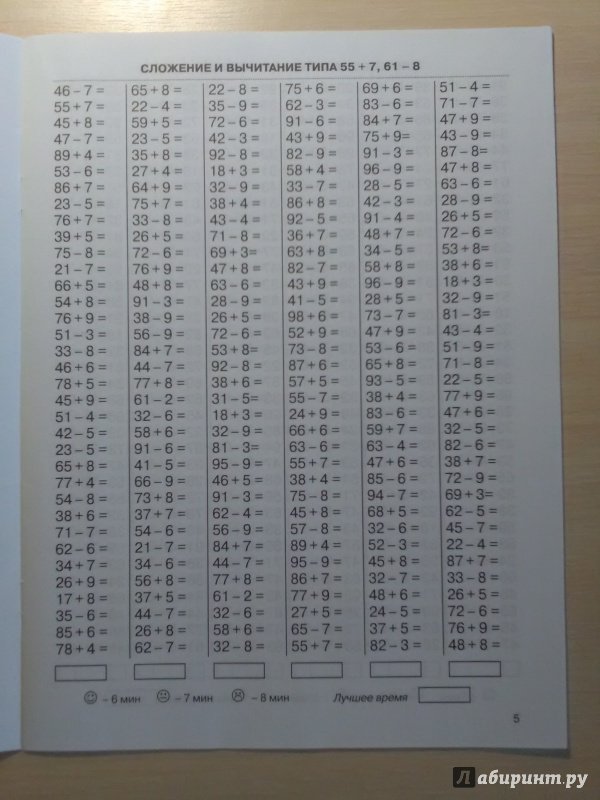 СЛОЖЕНИЕ И ВЫЧИТАНИЕ ТИПА 55 + 7, 61 – 8
46 – 7 = 65 + 8 = 22 – 8 = 75 + 6 = 69 + 6 = 51 – 4 =
55 + 7 = 22 – 4 = 35 – 9 = 62 – 3 = 83 – 6 = 71 – 7 =
45 + 8 = 59 + 5 = 72 – 6 = 91 – 6 = 84 + 7 = 47 + 9 =
47 – 7 = 23 – 5 = 42 – 3 = 43 + 9 = 75 + 9= 43 – 9 =
89 + 4 = 35 + 8 = 92 – 8 = 82 – 9 = 91 – 3 = 87 – 8=
53 – 6 = 27 + 4 = 18 + 3 = 58 + 4 = 96 – 9 = 47 + 8 =
86 + 7 = 64 + 9 = 32 – 9 = 33 – 7 = 28 – 5 = 63 – 6 =
23 – 5 = 75 + 7 = 38 + 4 = 86 + 8 = 42 – 3 = 28 – 9 =
76 + 7 = 33 – 8 = 43 – 4 = 92 – 5 = 91 – 4 = 26 + 5 =
39 + 5 = 26 + 5 = 71 – 8 = 36 + 7 = 48 + 7 = 72 – 6 =
75 – 8 = 72 – 6 = 69 + 3= 63 + 8 = 34 – 5 = 53 + 8=
21 – 7 = 76 + 9 = 47 + 8 = 82 – 7 = 58 + 8 = 38 + 6 =
66 + 5 = 48 + 8 = 63 – 6 = 43 + 9 = 96 – 9 = 18 + 3 =
54 + 8 = 91 – 3 = 28 – 9 = 41 – 5 = 28 + 5 = 32 – 9 =
76 + 9 = 38 – 9 = 26 + 5 = 98 + 6 = 73 – 7 = 81 – 3=
51 – 3 = 56 – 9 = 72 – 6 = 52 + 9 = 47 + 9 = 43 – 4 =
33 – 8 = 84 + 7 = 53 + 8= 73 – 8 = 53 – 6 = 51 – 9 =
46 + 6 = 44 – 7 = 92 – 8 = 87 + 6 = 65 + 8 = 71 – 8 =
78 + 5 = 77 + 8 = 38 + 6 = 57 + 5 = 93 – 5 = 22 – 5 =
45 + 9 = 61 – 2 = 31 – 5= 55 – 7 = 38 + 4 = 77 + 9 =
51 – 4 = 32 – 6 = 18 + 3 = 24 + 9 = 83 – 6 = 47 + 6 =
42 – 5 = 58 + 6 = 32 – 9 = 66 + 6 = 59 + 7 = 32 – 5 =
23 – 5 = 91 – 6 = 81 – 3= 63 – 6 = 63 – 4 = 82 – 6 =
65 + 8 = 41 – 5 = 95 – 9 = 55 + 7 = 47 + 6 = 38 + 7 =
77 + 4 = 66 – 9 = 46 + 5 = 38 + 4 = 85 – 6 = 72 – 9 =
54 – 8 = 73 + 8 = 91 – 3 = 75 – 8 = 94 – 7 = 69 + 3=
38 + 6 = 37 + 7 = 62 – 4 = 45 + 8 = 68 + 5 = 62 – 5 =
71 – 7 = 54 – 6 = 56 – 9 = 57 – 8 = 32 – 6 = 45 – 7 =
62 – 6 = 21 – 7 = 84 + 7 = 89 + 4 = 52 – 3 = 22 – 4 =
34 + 7 = 34 – 6 = 44 – 7 = 95 – 9 = 45 + 8 = 87 + 7 =
26 + 9 = 56 + 8 = 77 + 8 = 86 + 7 = 32 – 7 = 33 – 8 =
17 + 8 = 37 + 5 = 61 – 2 = 77 + 9 = 48 + 6 = 26 + 5 =
35 – 6 = 44 – 7 = 32 – 6 = 27 + 5 = 24 – 5 = 72 – 6 =
85 + 6 = 26 + 8 = 58 + 6 = 65 – 7 = 37 + 5 = 76 + 9 =
78 + 4 = 62 – 7 = 32 – 8 = 55 + 7 = 82 – 3 = 48 + 8 =
– 6 мин – 7 мин – 8 мин Лучшее время
5
лабиринт.ру